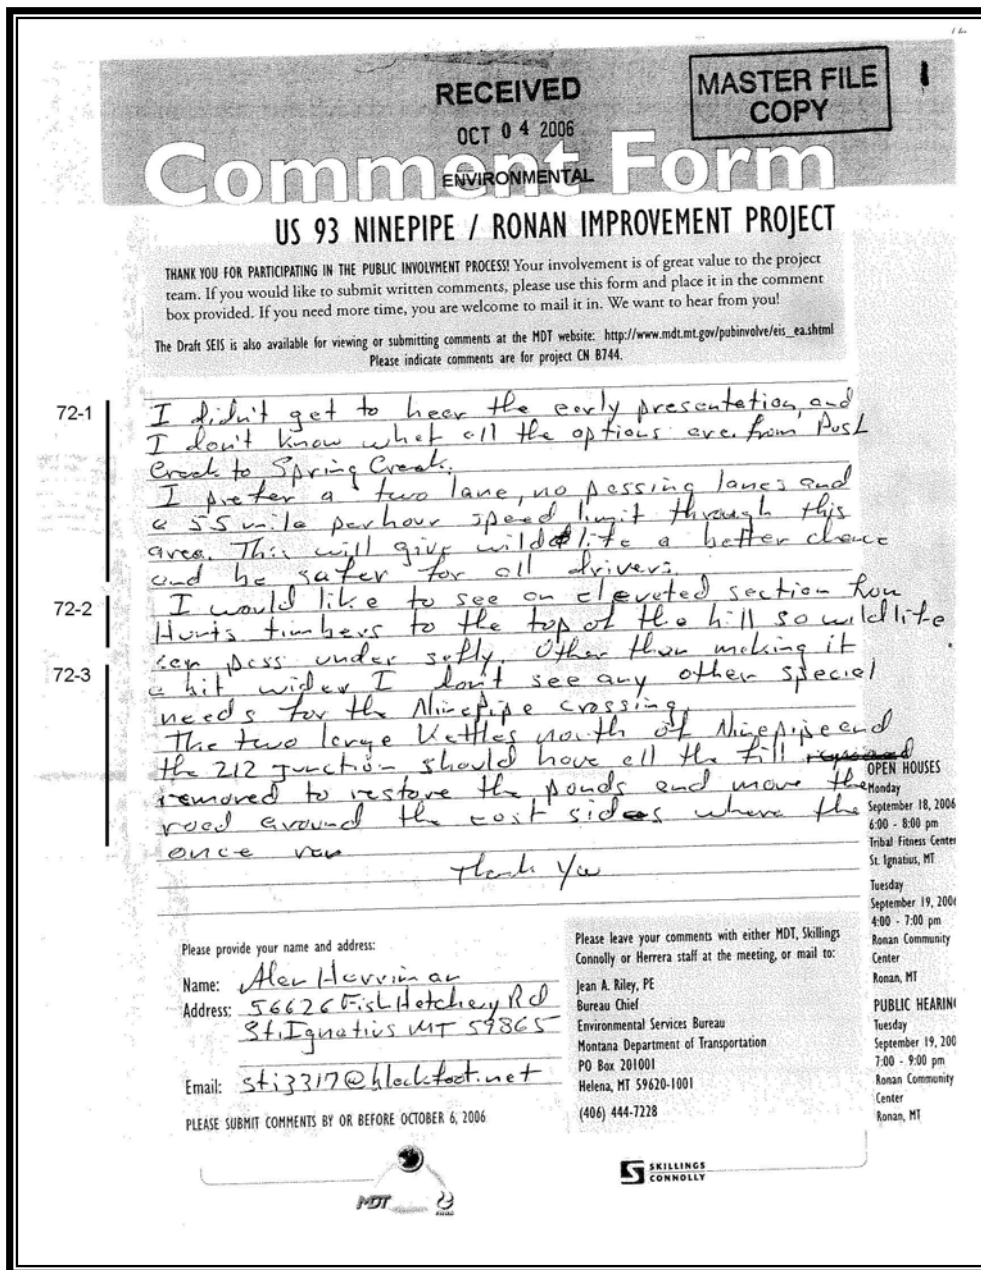 RECEIVED
OCT 04 2006
ENVIRONMENTAL
MASTER FILE
COPY
1
Comment Form
US 93 NINEPIPE / RONAN IMPROVEMENT PROJECT
THANK YOU FOR PARTICIPATING IN THE PUBLIC INVOLVMENT PROCESS! Your involvement is of great value to the project
team. If you would like to submit written comments, please use this form and place it in the comment
box provided. If you need more time, you are welcome to mail it in. We want to hear from you!
The Draft SEIS is also available for viewing or submitting comments at the MDT website: http://www.mdt.mt.gov/pubinvolve/eis_ea.shtml
Please indicate comments are for project CN B744.
72-1
I didn't get to hear the early presentation, and
I don't know what all the options are. from Post
Creek to Spring Creek.
I prefer a two lane, no passing lanes and
a 55 mile per hour speed limit through this
area. This will give wildlife a better chance
and be safer for all drivers.
72-2
I would like to see an elevated section from
Hunts timbers to the top of the hill so wildlife
can pass under safly. Other than making it
72-3
a bit wider I don't see any other special
needs for the Ninepipe crossing.
The two large Kettles north of Ninepipe and
the 212 junction should have all the fill
removed to restore the ponds and move the
road around the east sides where the
once ran
Thank You
OPEN HOUSES
Monday
September 18, 2006
6:00 - 8:00 pm
Tribal Fitness Center
St. Ignatius, MT
Tuesday
September 19, 200
4:00 - 7:00 pm
Ronan Community
Center
Ronan, MT
PUBLIC HEARIN
Tuesday
September 19, 200
7:00 - 9:00 pm
Ronan Community
Center
Ronan, MT
Please provide your name and address:
Name: Alen Harriman
Address: 56626 Fish Hatchery Rd
St. Ignatius MT 59865
Email: sti3317@blackfoot.net
PLEASE SUBMIT COMMENTS BY OR BEFORE OCTOBER 6, 2006
Please leave your comments with either MDT, Skillings
Connolly or Herrera staff at the meeting, or mail to:
Jean A. Riley, PE
Bureau Chief
Environmental Services Bureau
Montana Department of Transportation
PO Box 201001
Helena, MT 59620-1001
(406) 444-7228
MDT
SKILLINGS
CONNOLLY